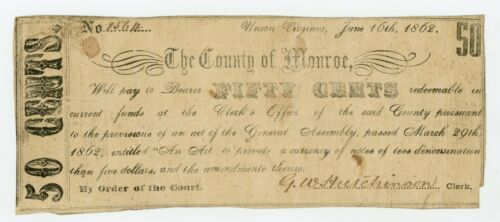 No. 1364
Union Virginia, June 16th, 1862.
50
The County of Monroe,
Will pay to Bearer FIFTY CENTS redeemable in
current funds at the Clerk's Office of the said County pursuant
to the provisions of an act of the General Assembly, passed March 29th,
1862, entitled "An Act to provide a currency of notes of less denomination
than five dollars, and the amendments thereto.
By Order of the Court.
G. W. Hutchinson Clerk.
50 CENTS.